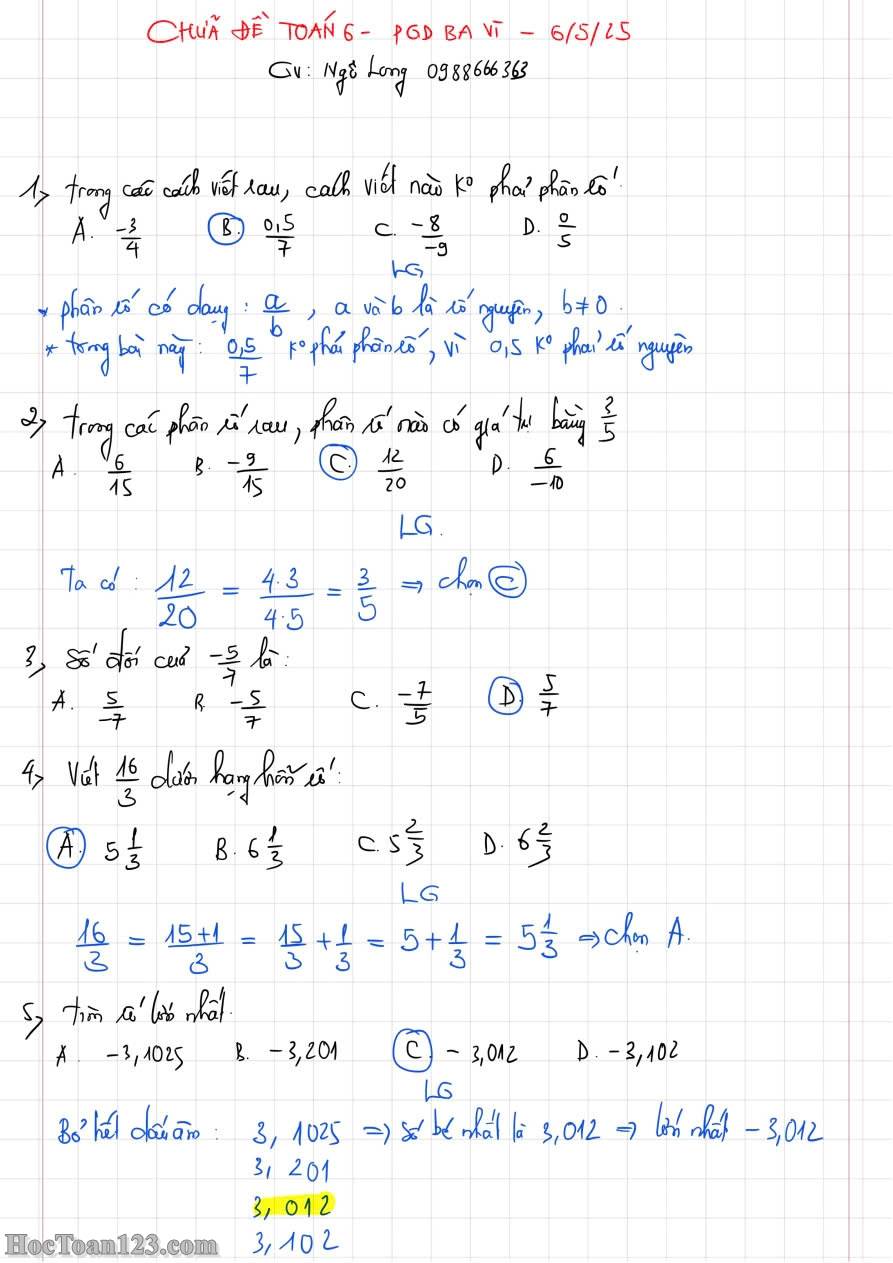 CHUĀ ĐỀ TOÁN 6 - PGD BA VÌ - 6/5/25
GV: Ngô Long 0988666363
1, trong các cách viết sau, cách viết nào K° phải phân số
A. -3/4 B. 0,5/7 C. -8/-9 D. 0/5
LG
* phân số có dạng: a/b, a và b là số nguyên, b ≠ 0.
* trong bài này: 0,5/7 K° phải phân số, vì 0,5 K° phải số nguyên
2, trong các phân số sau, phân số nào có giá trị bằng 3/5
A. 6/15 B. -9/15 C. 12/20 D. 6/-10
LG.
Ta có: 12/20 = 4.3/4.5 = 3/5 => chọn C
3, số đối của -5/7 là:
A. 5/-7 B. -5/7 C. -7/5 D. 5/7
4, Viết 16/3 dưới hạng hỗn số:
A. 5 1/3 B. 6 1/3 C. 5 2/3 D. 6 2/3
LG
16/3 = 15+1/3 = 15/3 + 1/3 = 5 + 1/3 = 5 1/3 => chọn A.
5, tìm số lớn nhất.
A. -3,1025 B. -3,201 C. -3,012 D. -3,102
LG
Bỏ hết dấu âm: 3,1025 => số bé nhất là 3,012 => lớn nhất -3,012
3,201
3,012
3,102
HocToan123.com